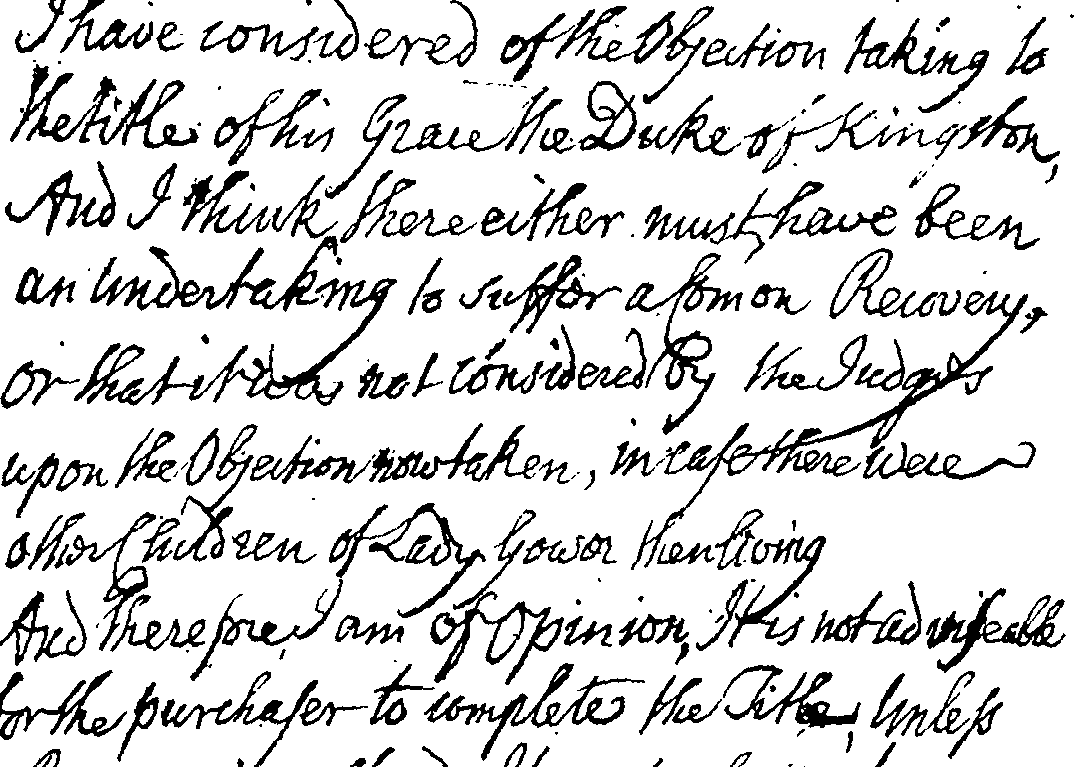 I have considered of the Objection taking to
the title of his Grace the Duke of Kingston,
And I think there either must have been
an Undertaking to suffer a Comon Recovery,
Or that it was not considered by the Judges
upon the Objection now taken, in case there were
other Children of Lady Gower then living
And therefore I am of Opinion, It is not adviseable
for the purchaser to complete the Title, Unless